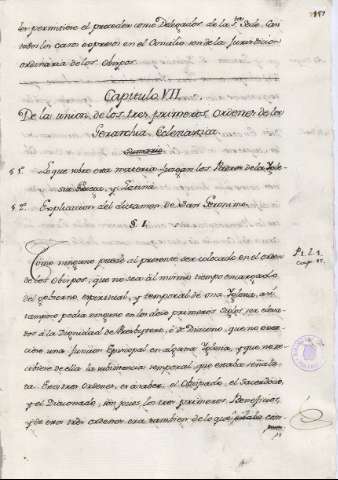 les permitiese el proceder como Delegados de la Sta. Sede. Casi
todos los casos expresos en el Concilio son de la Jurisdiccion
ordinaria de los Obispos.
Capitulo VII.
De la union de los tres primeros Ordenes de la
Gerarchia Eclesiastica
Sumario
§ 1º. Lo que sobre esta materia juzgan los Padres de la Igle-
sia Griega, y Latina
§ 2º. Explicacion del dictamen de San Geronimo.
§. 1.
Como ninguno puede al presente ser colocado en el orden
de los Obispos, que no sea al mismo tiempo encargado
del gobierno espiritual, y temporal de una Yglesia, asi
tampoco podia ninguno en los doce primeros siglos ser eleva-
do à la Dignidad de Presbytero, ò de Diacono, que no exer-
ciese una funcion Episcopal en alguna Yglesia, y que no re-
cibiese de ella la subsistencia temporal que estaba señala-
da. Estos tres Ordenes, es à saber, el Obispado, el Sacerdocio,
y el Diaconado, son pues los tres primeros Beneficios,
y de estos tres ordenes era tambien de lo que
P. 1. L. 1.
cap. 27.